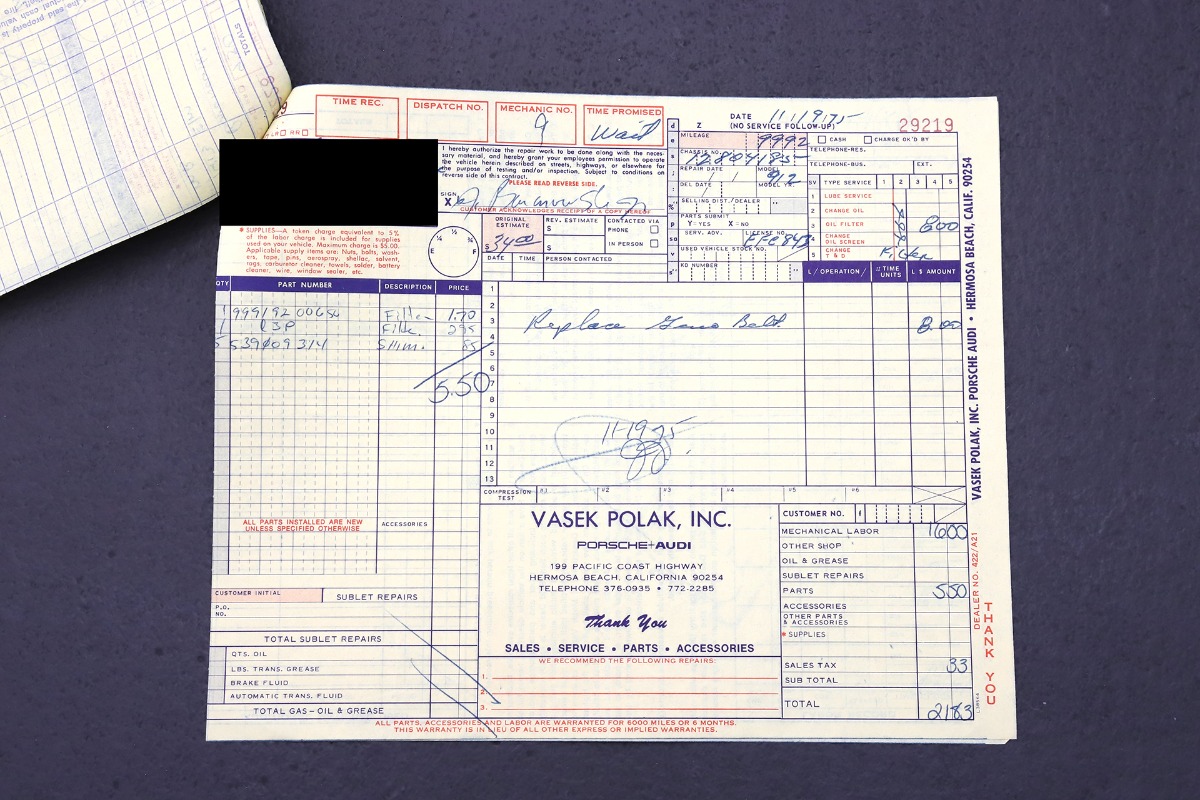 TOTALS
TIME REC.
DISPATCH NO.
MECHANIC NO.
9
TIME PROMISED
Wait
DATE 11/19/75
Z (NO SERVICE FOLLOW-UP)
29219
I hereby authorize the repair work to be done along with the neces-
sary material, and hereby grant your employees permission to operate
the vehicle herein described on streets, highways, or elsewhere for
the purpose of testing and/or inspection. Subject to conditions on
reverse side of this contract.
PLEASE READ REVERSE SIDE.
SIGN
X
CUSTOMER ACKNOWLEDGES RECEIPT OF A COPY HEREOF
MILEAGE 9992
CHASSIS NO.
REPAIR DATE
MODEL 912
DEL DATE
MODEL YR.
SELLING DIST./DEALER
PARTS SUBMIT
Y=YES X=NO
SERV. ADV.
LICENSE NO.
USED VEHICLE STOCK NO.
KD NUMBER
CASH
CHARGE OK'D BY
TELEPHONE-RES.
TELEPHONE-BUS.
EXT.
SV TYPE SERVICE 1 2 3 4 5
1 LUBE SERVICE
2 CHANGE OIL
3 OIL FILTER 800
4 CHANGE OIL SCREEN
5 CHANGE T & D Filter
* SUPPLIES—A token charge equivalent to 5%
of the labor charge is included for supplies
used on your vehicle. Maximum charge is $5.00.
Applicable supply items are: Nuts, bolts, wash-
ers, tape, pins, aerospray, shellac, solvent,
rags, carburetor cleaner, towels, solder, battery
cleaner, wire, window sealer, etc.
E ¼ ½ ¾ F
ORIGINAL ESTIMATE
$ 34.00
REV. ESTIMATE
$
$
CONTACTED VIA
PHONE
IN PERSON
DATE TIME PERSON CONTACTED
QTY PART NUMBER DESCRIPTION PRICE
L/OPERATION/ TIME UNITS L $ AMOUNT
1 Filter 1.70
1 Filt. 295
Shim. 85
5.50
1
2
3 Replace Geno Belt. 8.00
4
5
6
7
8
9
10 11-19-75
11
12
13
COMPRESSION TEST #1 #2 #3 #4 #5 #6
ALL PARTS INSTALLED ARE NEW
UNLESS SPECIFIED OTHERWISE
ACCESSORIES
CUSTOMER INITIAL
SUBLET REPAIRS
P.O. NO.
TOTAL SUBLET REPAIRS
QTS. OIL
LBS. TRANS. GREASE
BRAKE FLUID
AUTOMATIC TRANS. FLUID
TOTAL GAS-OIL & GREASE
VASEK POLAK, INC.
PORSCHE+AUDI
199 PACIFIC COAST HIGHWAY
HERMOSA BEACH, CALIFORNIA 90254
TELEPHONE 376-0935 • 772-2285
Thank You
SALES • SERVICE • PARTS • ACCESSORIES
WE RECOMMEND THE FOLLOWING REPAIRS:
1.
2.
3.
CUSTOMER NO.
MECHANICAL LABOR 1600
OTHER SHOP
OIL & GREASE
SUBLET REPAIRS
PARTS 550
ACCESSORIES
OTHER PARTS & ACCESSORIES
* SUPPLIES
SALES TAX 33
SUB TOTAL
TOTAL 2183
ALL PARTS, ACCESSORIES AND LABOR ARE WARRANTED FOR 6000 MILES OR 6 MONTHS.
THIS WARRANTY IS IN LIEU OF ALL OTHER EXPRESS OR IMPLIED WARRANTIES.
VASEK POLAK, INC. PORSCHE AUDI • HERMOSA BEACH, CALIF. 90254
DEALER NO. 422/A21
THANK YOU